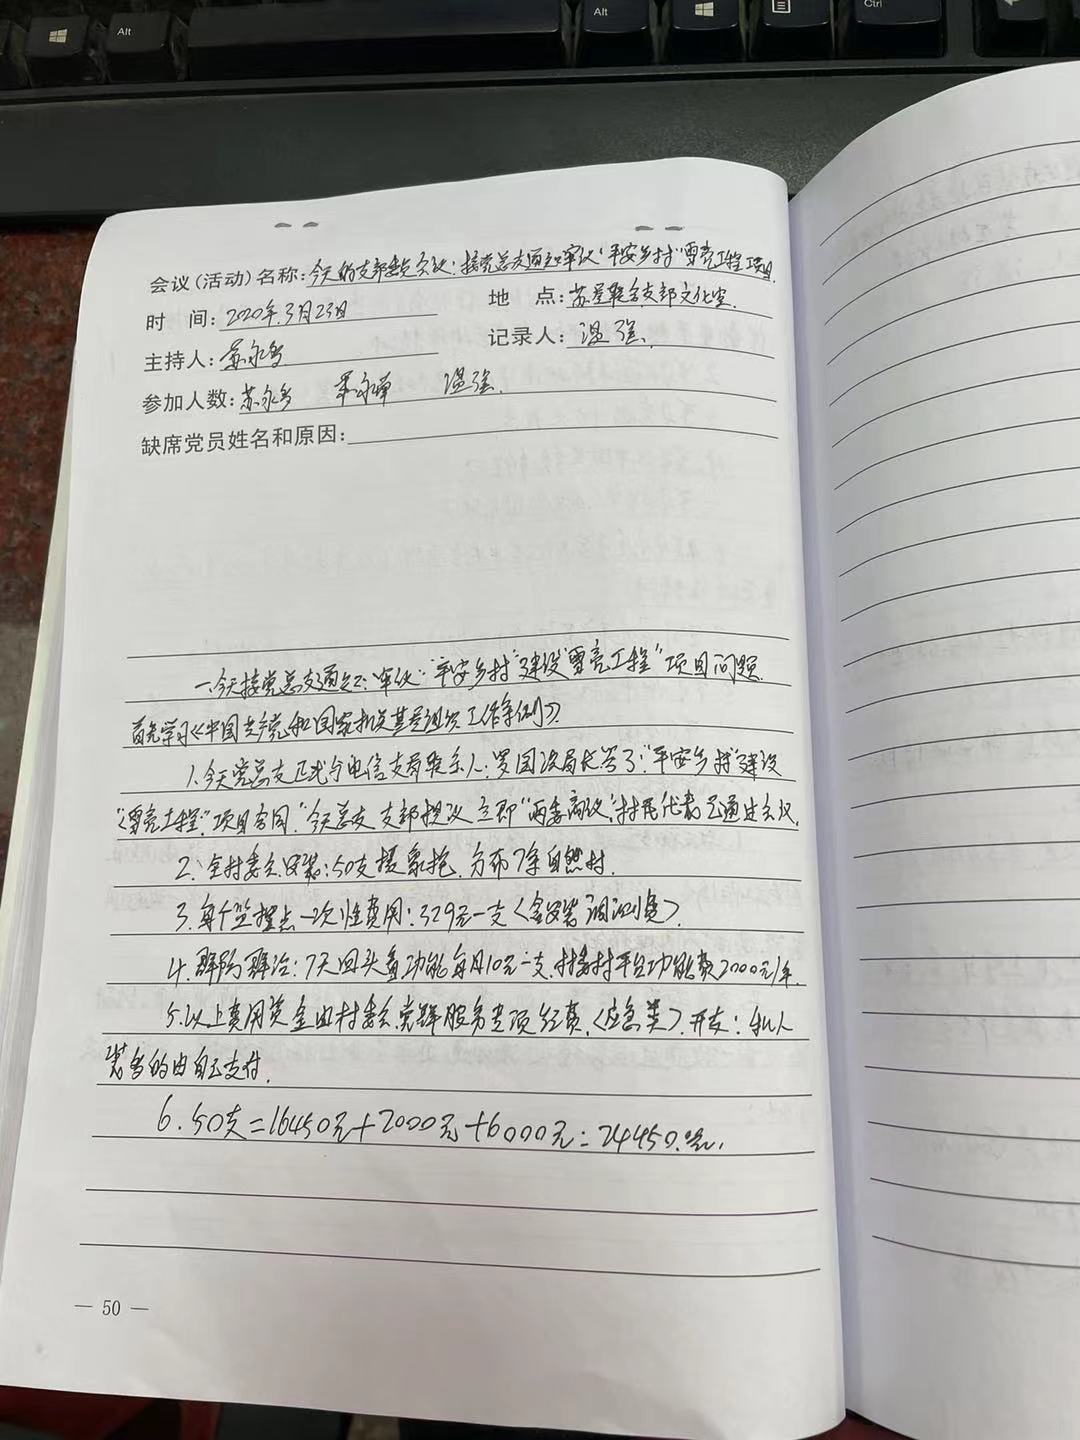 Alt
Alt
Ctrl
会议(活动)名称:今天的支部委员会议:接党总支通知审议"平安乡村"雪亮工程项目
时 间:2020年3月23日 地 点:苏屋联合支部文化室
主持人:苏永 记录人:温强
参加人数:苏永 永 温强
缺席党员姓名和原因:
一.今天接党总支通知:审议:"平安乡村"建设"雪亮工程"项目问题
首先学习《中国共产党和国家机关基层组织工作条例》
1.今天党总支正式与电信支局联系人:罗国 局长签了:"平安乡村"建设
"雪亮工程":项目合同."今天总支 支部提议 立即"两委商议",村民代表已通过会议.
2.全村委会安装:50支摄象枪,分布7条自然村.
3.每个监控点一次性费用:329元一支(含安装调测费)
4.群防群治:7天回头看功能每月10元一支.村看村平台功能费2000元/年.
5.以上费用资金由村委会党群服务专项经费,(应急类).开支:私人
装的由自己支付.
6.50支=16450元+2000元+6000元=24450.元.
— 50 —